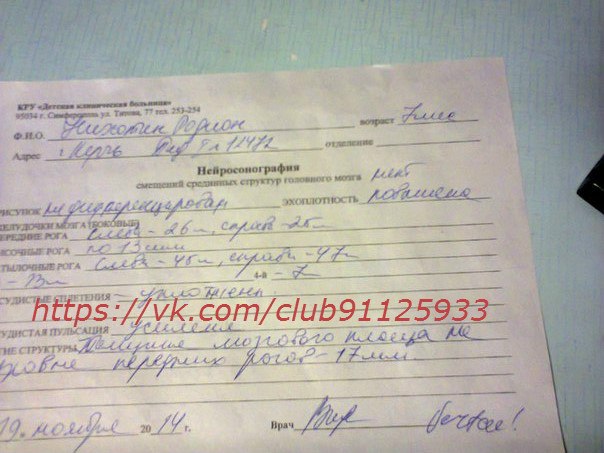 КРУ «Детская клиническая больница»
95034 г. Симферополь ул. Титова, 77 тел. 253-254
Ф.И.О. Никотин Родион возраст 7 мес
Адрес г Керчь отделение
Нейросонография
смещений срединных структур головного мозга нет
РИСУНОК не дифференцирован ЭХОПЛОТНОСТЬ повышена
ЖЕЛУДОЧКИ МОЗГА (БОКОВЫЕ)
ПЕРЕДНИЕ РОГА слева - 26 м, справа - 25 м
ВИСОЧНЫЕ РОГА по 13 мм
ЗАТЫЛОЧНЫЕ РОГА слева - 45 м, справа - 47 м
4-й - 7
https://vk.com/club91125933
СОСУДИСТЫЕ СПЛЕТЕНИЯ - уплотнены
СОСУДИСТАЯ ПУЛЬСАЦИЯ усилена
ДРУГИЕ СТРУКТУРЫ Толщина мозгового плаща на
уровне передних рогов - 17 мм
19. ноября 2014 г. Врач